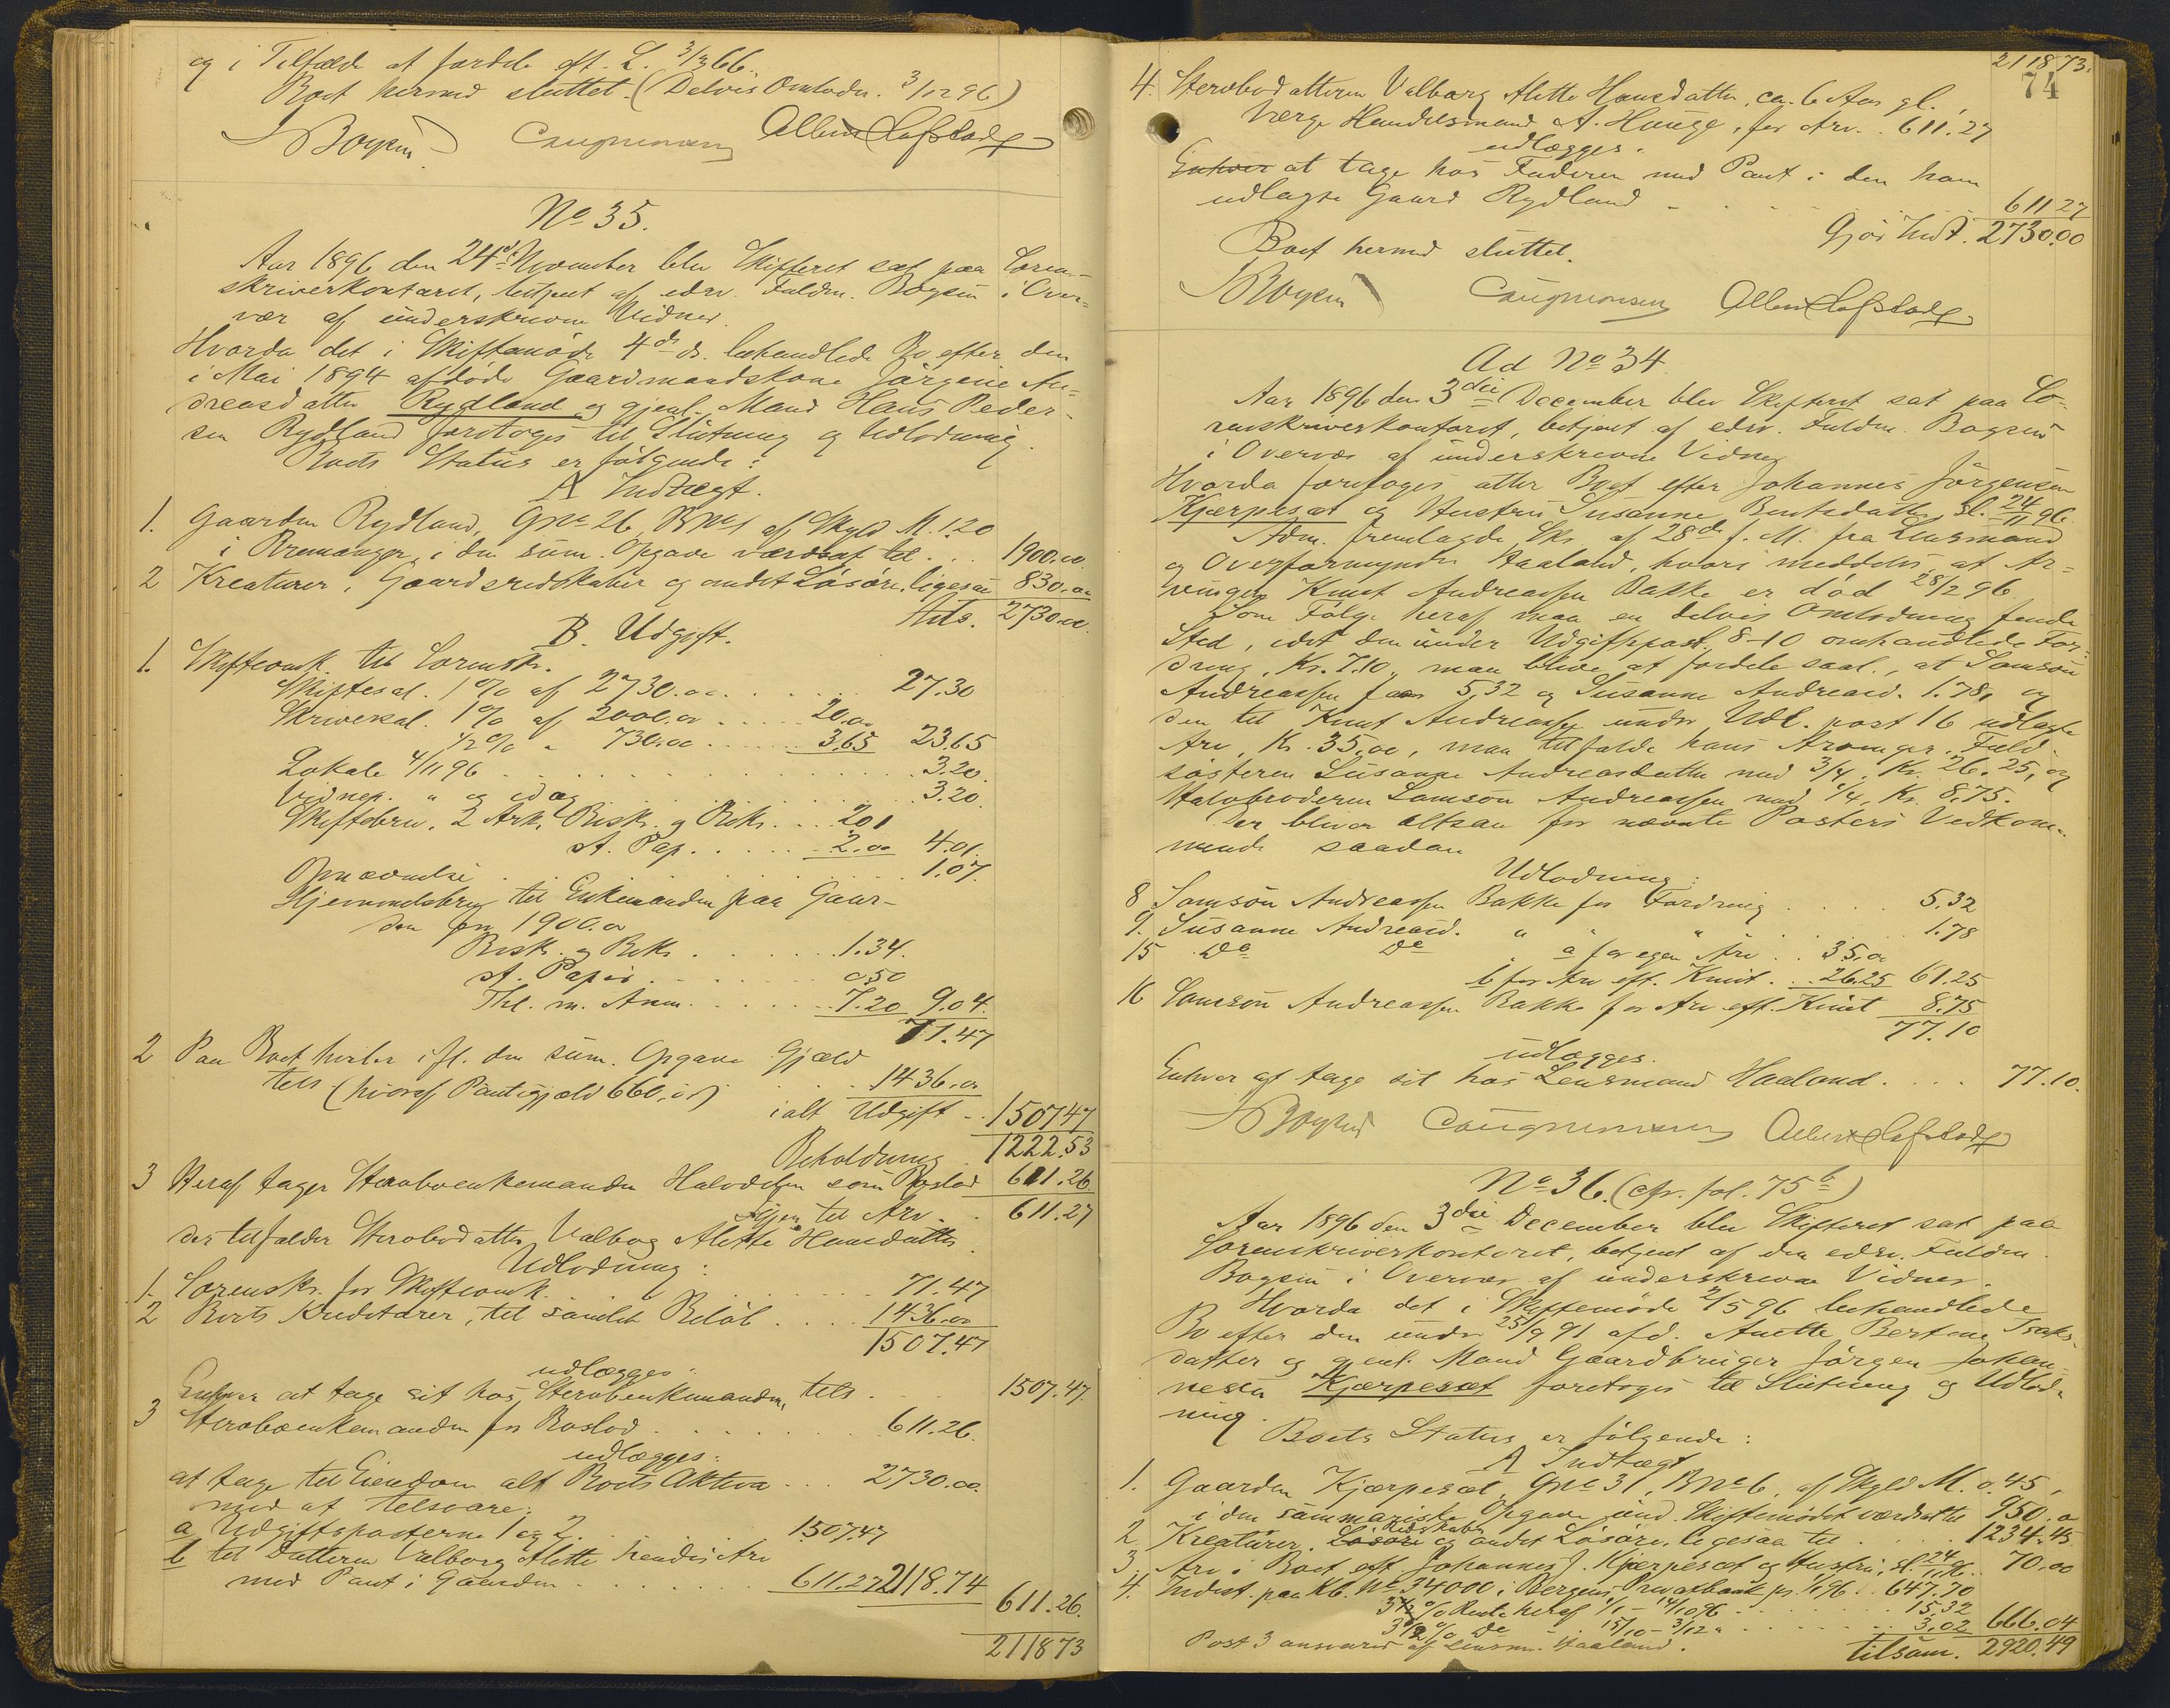 og i Tilfælde at fordele eft. L. 3/3 66.
Boet hermed sluttet. (Delvis Omlodn. 3/12 96)
Boysen
No 35.
Aar 1896 den 24de November blev Skifteret sat paa Soren-
skriverkontoret, betjent af edsv. Fuldm. Boysen i Over-
vær af underskrevne Vidner.
Hvorda det i Skiftemøde 4de ds. behandlede Bo efter den
i Mai 1894 afdøde Gaardmandskone Jørgine An-
dreasdatter Rydland og gjenl. Mand Hans Peder-
sen Rydland foretoges til Slutning og Udlodning.
Boets Status er følgende:
A Indtægt.
1. Gaarden Rydland, Gno 26, Bno 1 af Skyld M. 1.20
i Bremanger, i den sum. Opgave værdsat til . . 1900.00
2 Kreaturer, Gaardsredskaber og andet Løsøre. ligesaa 830.00
Tils. 2730.00
B. Udgift.
1. Skifteomk. til Sorenskr.
Skiftesal. 1% af 2730.00 . . . . 27.30
Skriversal. 1% af 2000.00 . . . . 20.00
1/2% " 730.00 . . . . 3.65 23.65
Lokale 4/11 96 . . . . 3.20.
Vidnep. " og idag . . . . 3.20.
Skiftebrev. 2 Ark. Besk. og Rekv. . . 2.01
st. Pap. . . . . 2.00 4.01.
Opnævnelse . . . . 1.07.
Hjemmelsbrev til Enkemanden paa Gaar-
den for 1900.00
Besk. og Rekv. . . . . 1.34.
st. Papir . . . . 0.50
Thl. m. Anm. . . . . 7.20 9.04.
71.47
2 Paa Boet hviler ifl. den sum. Opgave Gjæld
tils. (hvoraf Pantegjæld 660,00) . . . 1436.00
ialt Udgift . . 1507.47
Beholdning 1222.53
3 Heraf tager Sterboenkemanden Halvdelen som Boslod 611.26
Igjen til Arv . . 611.27
der tilfalder Sterbodatter Valborg Alette Hansdatter.
Udlodning:
1. Sorenskr. for Skifteomk. . . . . 71.47
2 Boets Kreditorer, til samlet Beløb . . . . 1436.00
1507.47
udlægges:
Enhver at tage sit hos Sterboenkemanden, tils. . . . 1507.47.
3 Sterboenkemanden for Boslod . . . . 611.26.
udlægges:
at tage til Eiendom alt Boets Aktiva . . . 2730.00.
mod at tilsvare:
a Udgiftsposterne 1 og 2. . . . 1507.47
b til Datteren Valborg Alette hendes Arv
med Pant i Gaarden . . . . 611.27 2118.74
611.26.
2118 73
2118 73.
74
4. Sterbodatteren Valborg Alette Hansdatter, ca. 6 Aar gl.,
Verge Handelsmand A. Hauge, for Arv . . 611.27
udlægges.
Enhver at tage hos Faderen med Pant i den ham
udlagte Gaard Rydland . . . . 611 27
Gjør Indt. 2730.00
Boet hermed sluttet.
Boysen
Ad No 34
Aar 1896 den 3die December blev Skifteret sat paa So-
renskriverkontoret, betjent af edsv. Fuldm. Boysen
i Overvær af underskrevne Vidner
Hvorda foretoges atter Boet efter Johannes Jørgensen
Kjærpesæt og Hustru Susanne Bentsdatter, sl. 24/11 96.
Adm. fremlagde Skr. af 28de f. M. fra Lensmand
og Overformynder Haaland, hvori meddeles at Ar-
vingen Knut Andreassen Bakke er død 28/2 96.
Som Følge heraf maa en delvis Omlodning finde
Sted, idet den under Udgiftspost. 8-10 omhandlede For-
dring, Kr. 7.10, maa blive at fordele saal., at Samson
Andreassen faar 5,32 og Susanne Andreasd. 1.78, og
den til Knut Andreassen under Udl. post 16 udlagte
Arv, Kr. 35,00, maa tilfalde hans Arvinger, Fuld-
søsteren Susanne Andreasdatter med 3/4, Kr. 26.25, og
Halvbroderen Samson Andreassen med 1/4, Kr. 8,75.
Der bliver altsaa for nævnte Posters Vedkom-
mende saadan
Udlodning:
8 Samson Andreassen Bakke for Fordring . . . . 5.32
9. Susanne Andreasd. " " " . . . 1.78
15 Do Do a for egen Arv . . 35.00
b for Arv eft. Knut . . 26.25 61.25
16 Samson Andreassen Bakke for Arv eft. Knut 8.75
77.10
udlægges.
Enhver at tage sit hos Lensmand Haaland . . . . 77.10.
Boysen
No 36. (cfr. fol. 75b)
Aar 1896 den 3die December blev Skifteret sat paa
Sorenskriverkontoret, betjent af den edsv. Fuldm.
Boysen i Overvær af underskrevne Vidner.
Hvorda det i Skiftemøde 2/5 96 behandlede
Bo efter den under 25/9 91 afd. Anette Bertine Isaks-
datter og gjenl. Mand Gaardbruger Jørgen Johan-
nesen Kjærpesæt foretoges til Slutning og Udlod-
ning.
Boets Status er følgende:
A Indtægt
1. Gaarden Kjærpesæt, Gno 31, Bno 6, af Skyld M. 0.45,
i den summariske Opgave und. Skiftemødet værdsat til 950.00
2. Kreaturer, Løsøre Redskaber og andet Løsøre, ligesaa til . . 1234.45.
3, Arv i Boet eft. Johannes J. Kjærpesæt og Hustru, sl. 24/11 96. 70.00
4. Indest. paa Kb. No 34000 i Bergens Privatbank pr. 1/1 96 . . 647.70
3 1/2 % Rente heraf 1/1 - 14/10 96 . . . . 15.32
3 1/2 % Do 15/10 - 3/12 " . . . . 3.02 666.04
Post 3 ansvares af Lensm. Haaland. tilsam. 2920.49